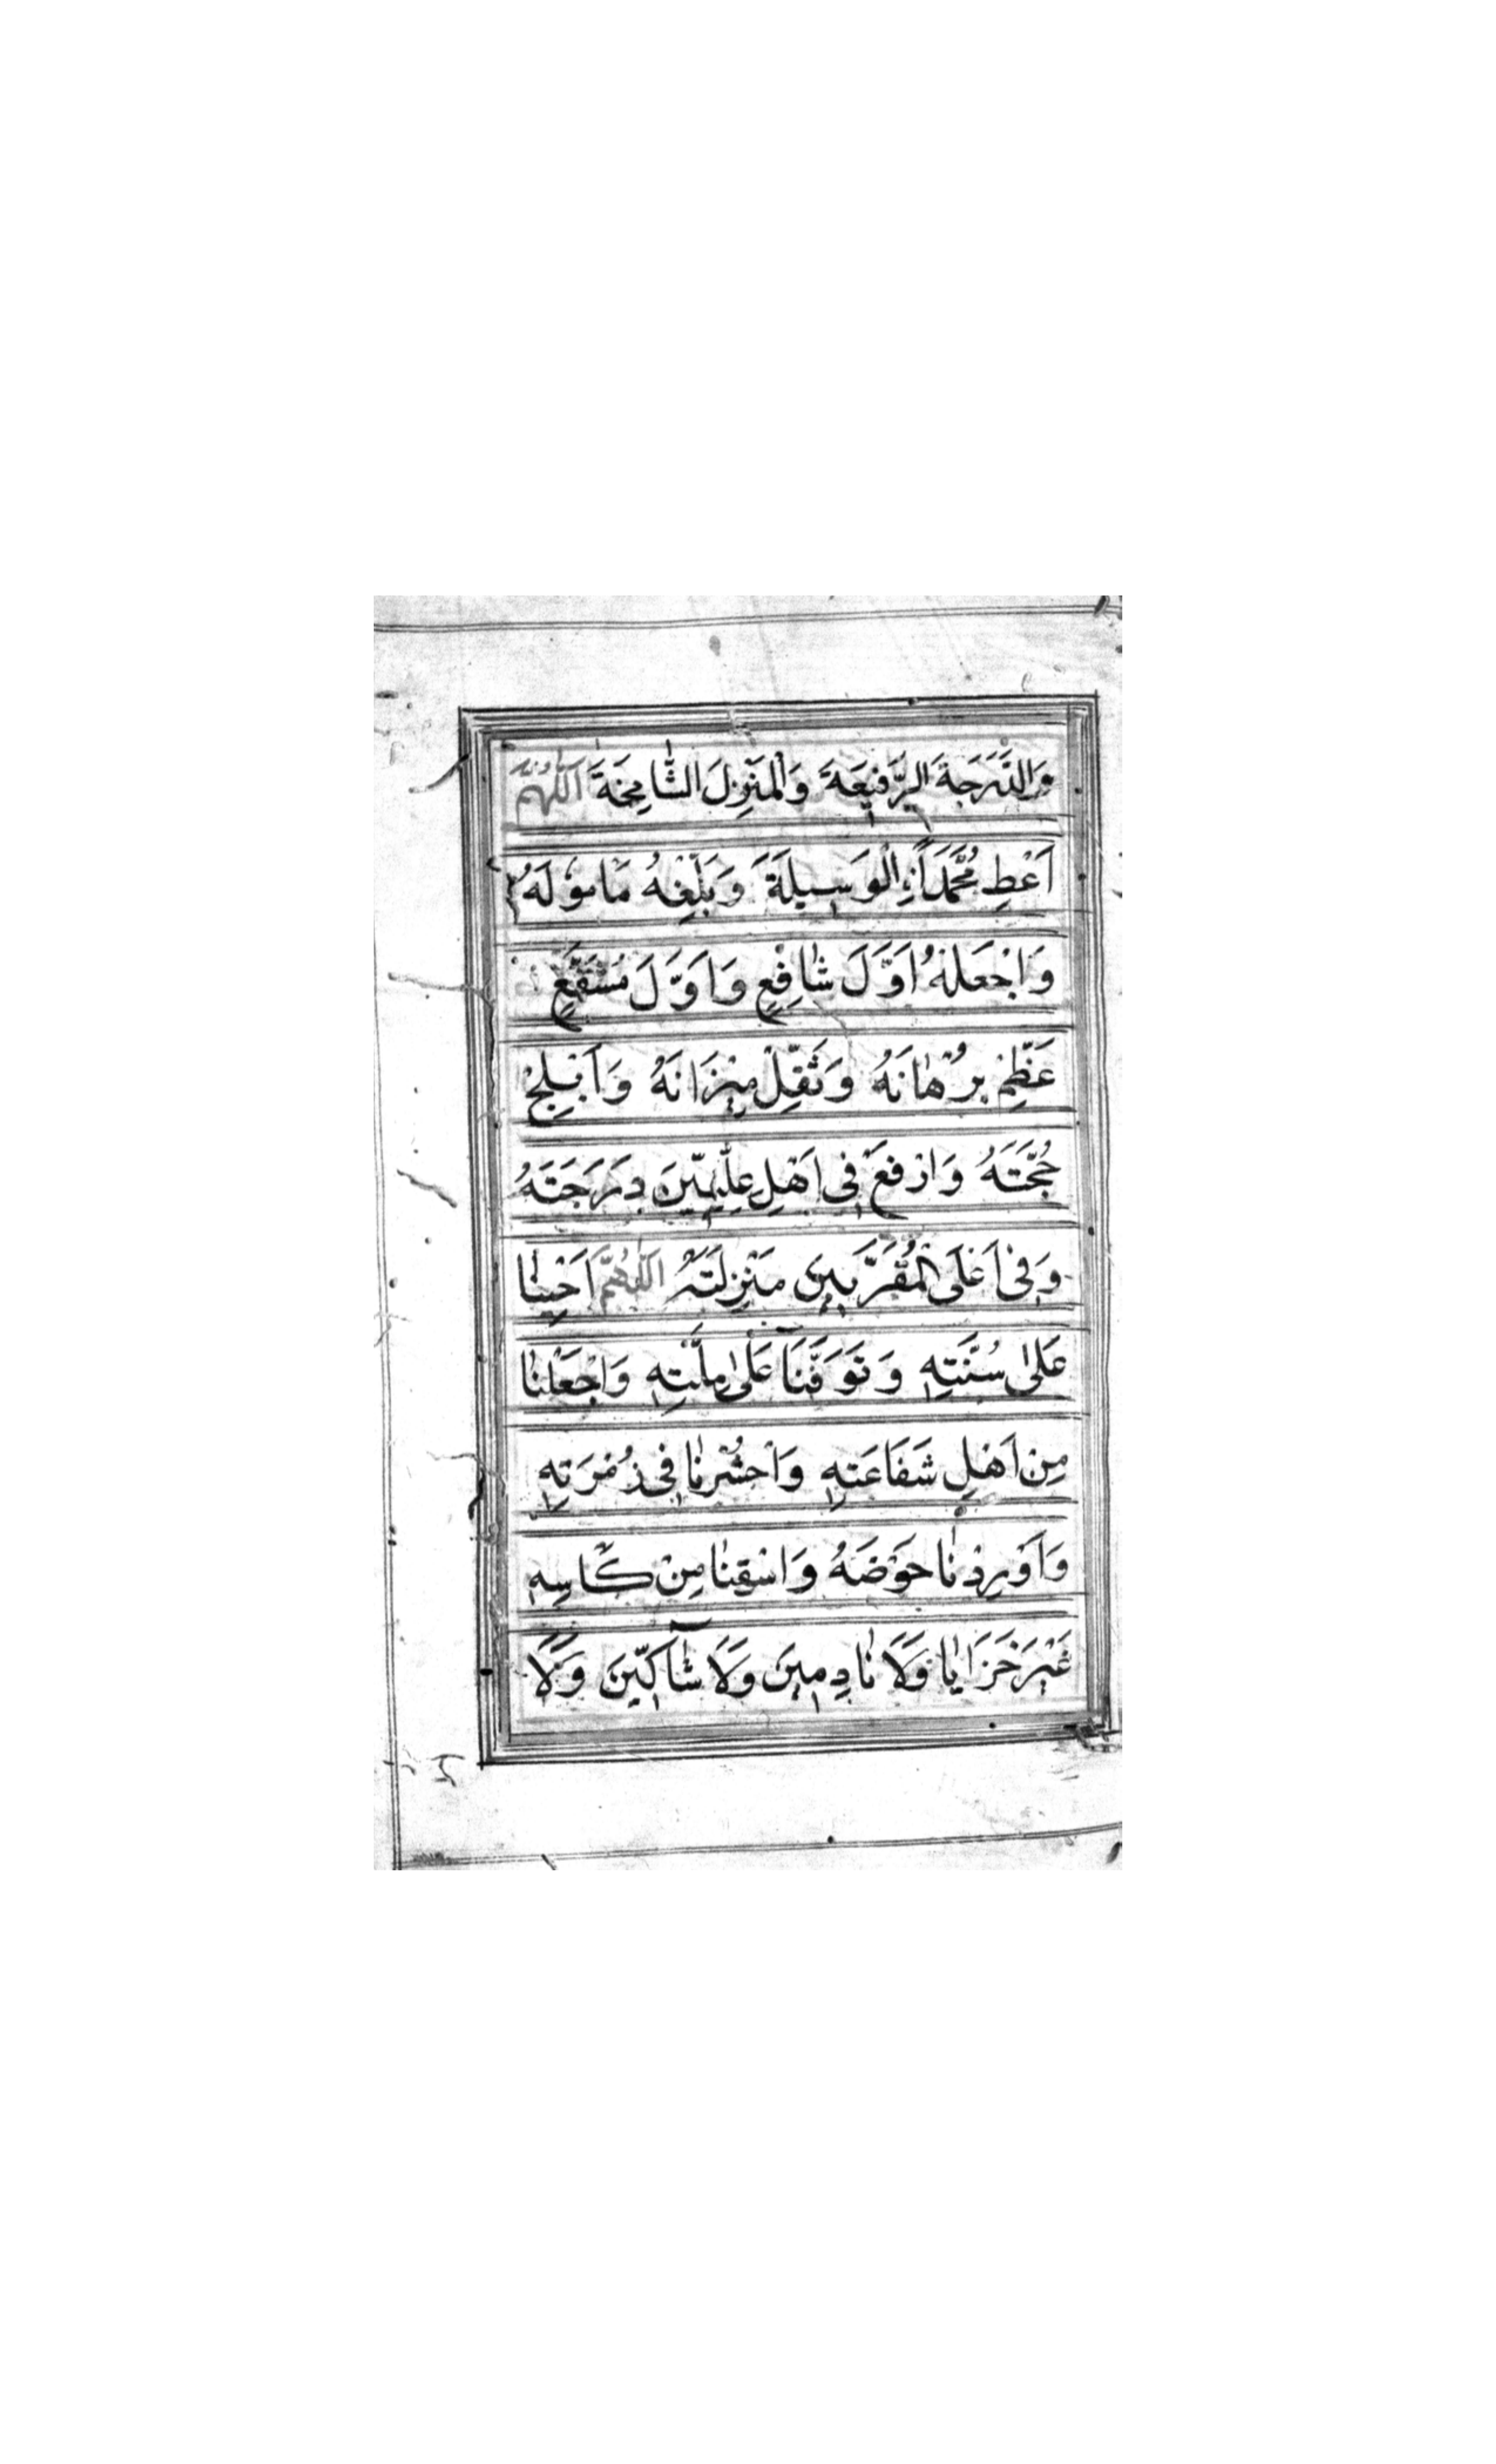 وَالدَّرَجَةَ الرَّفِيعَةَ وَالْمَنْزِلَ الشَّامِخَةَ اَللّٰهُمَّ
اَعْطِ مُحَمَّدَاًنِ الْوَسِيلَةَ وَبَلِّغْهُ مَامُوْلَهُ
وَاجْعَلْهُ اَوَّلَ شَافِعٍ وَاَوَّلَ مُشَفَّعٍ
عَظِّمْ بُرْهَانَهُ وَثَقِّلْ مِيْزَانَهُ وَاَبْلِجْ
حُجَّتَهُ وَارْفَعْ فِي اَهْلِ عِلِّيِّيْنَ دَرَجَتَهُ
وَفِي اَعْلَى الْمُقَرَّبِيْنَ مَنْزِلَتَهُ اَللّٰهُمَّ اَحْيِنَا
عَلٰى سُنَّتِهِ وَتَوَفَّنَا عَلٰى مِلَّتِهِ وَاجْعَلْنَا
مِنْ اَهْلِ شَفَاعَتِهِ وَاحْشُرْنَا فِي زُمْرَتِهِ
وَاَوْرِدْنَا حَوْضَهُ وَاسْقِنَا مِنْ كَاْسِهِ
غَيْرَ خَزَايَا وَلَا نَادِمِيْنَ وَلَا شَآكِّيْنَ وَلَا